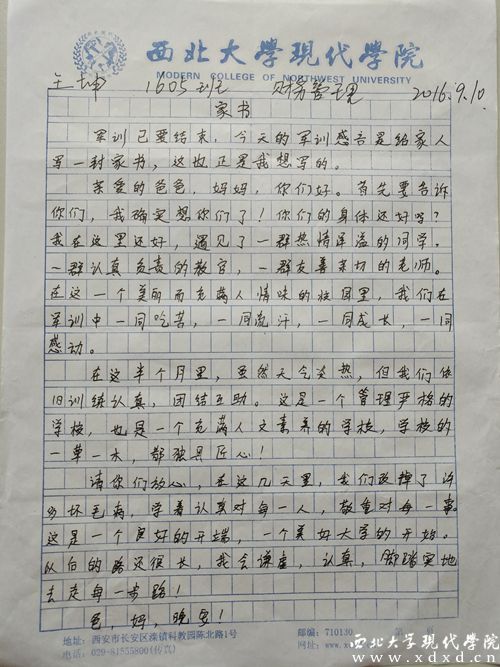 西北大學現代學院
MODERN COLLEGE OF NORTHWEST UNIVERSITY
王坤 1605班 财务管理 2016.9.10
家书
军训已要结束，今天的军训感言是给家人
写一封家书，这也正是我想写的。
亲爱的爸爸，妈妈，你们好。首先要告诉
你们，我确实想你们了！你们的身体还好吗？
我在这里还好，遇见了一群热情洋溢的同学，
一群认真负责的教官，一群友善亲切的老师。
在这一个美丽而充满人情味的校园里，我们在
军训中一同吃苦，一同流汗，一同成长，一同
感动。
在这半个月里，虽然天气炎热，但我们依
旧训练认真，团结互助。这是一个管理严格的
学校，也是一个充满人文素养的学校，学校的
一草一木，都独具匠心！
请你们放心，在这几天里，我们改掉了许
多坏毛病，学着认真对每一人，敬重对每一事。
这是一个良好的开端，一个美好大学的开始。
以后的路还很长，我会谦虚，认真，脚踏实地
去走每一步路！
爸，妈，晚安！
地址：西安市长安区滦镇科教园陈北路1号 邮编：710130
电话：029-81555800(传真) 网址：www.
西北大学现代学院
www.xdxd.cn